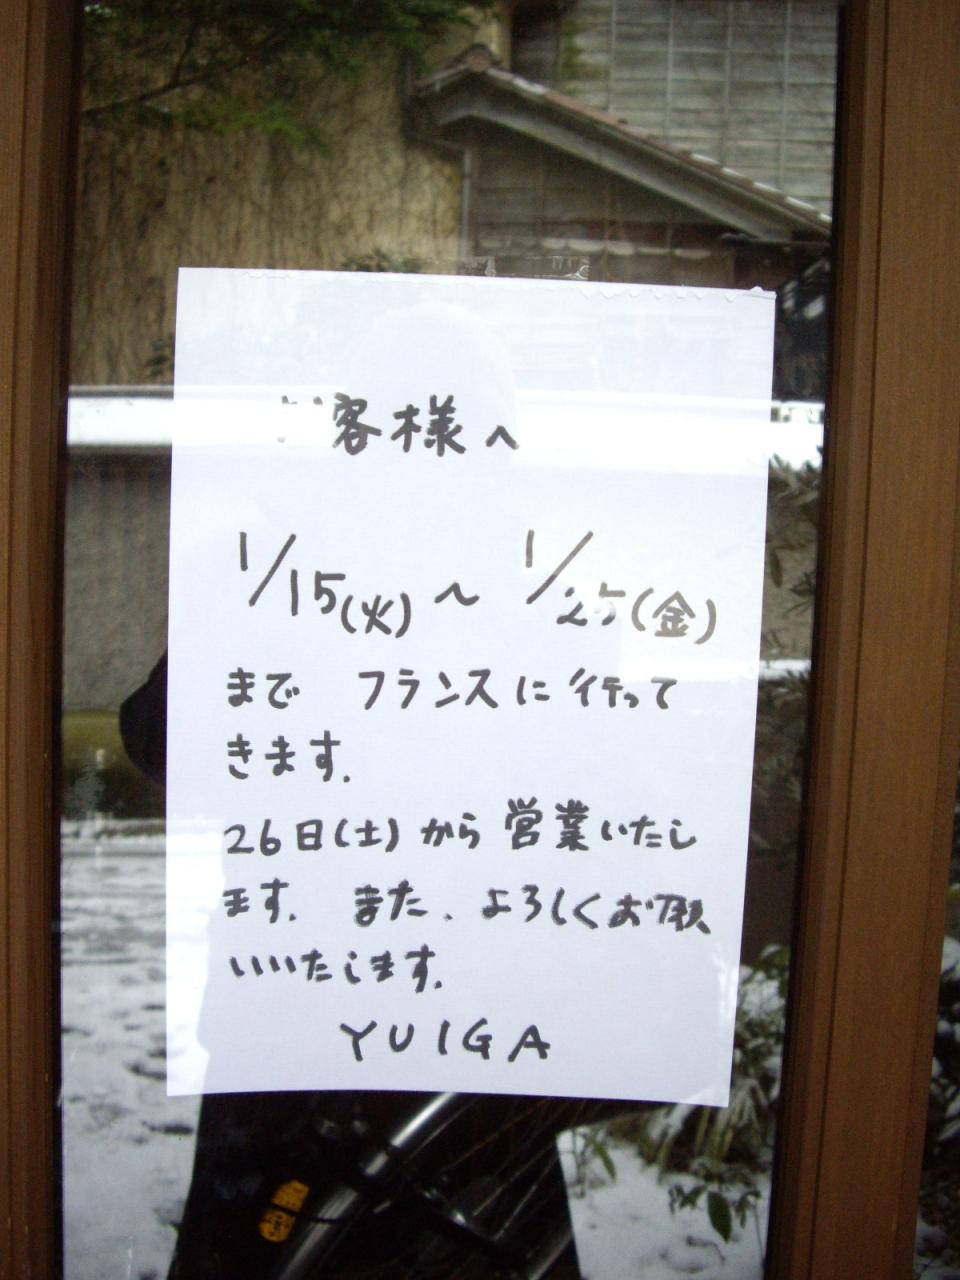 お客様へ
1/15(火)〜1/25(金)
まで フランスに行って
きます.
26日(土)から営業いたし
ます. また、よろしくお願
いいたします.
YUIGA